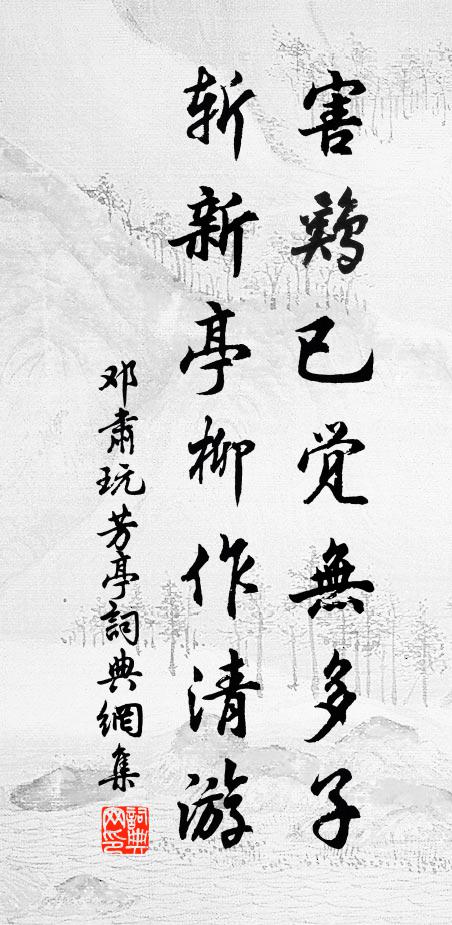 害鷄已觉無多子
斩新亭柳作清游
邓肃玩芳亭詞典網集
詞典网印